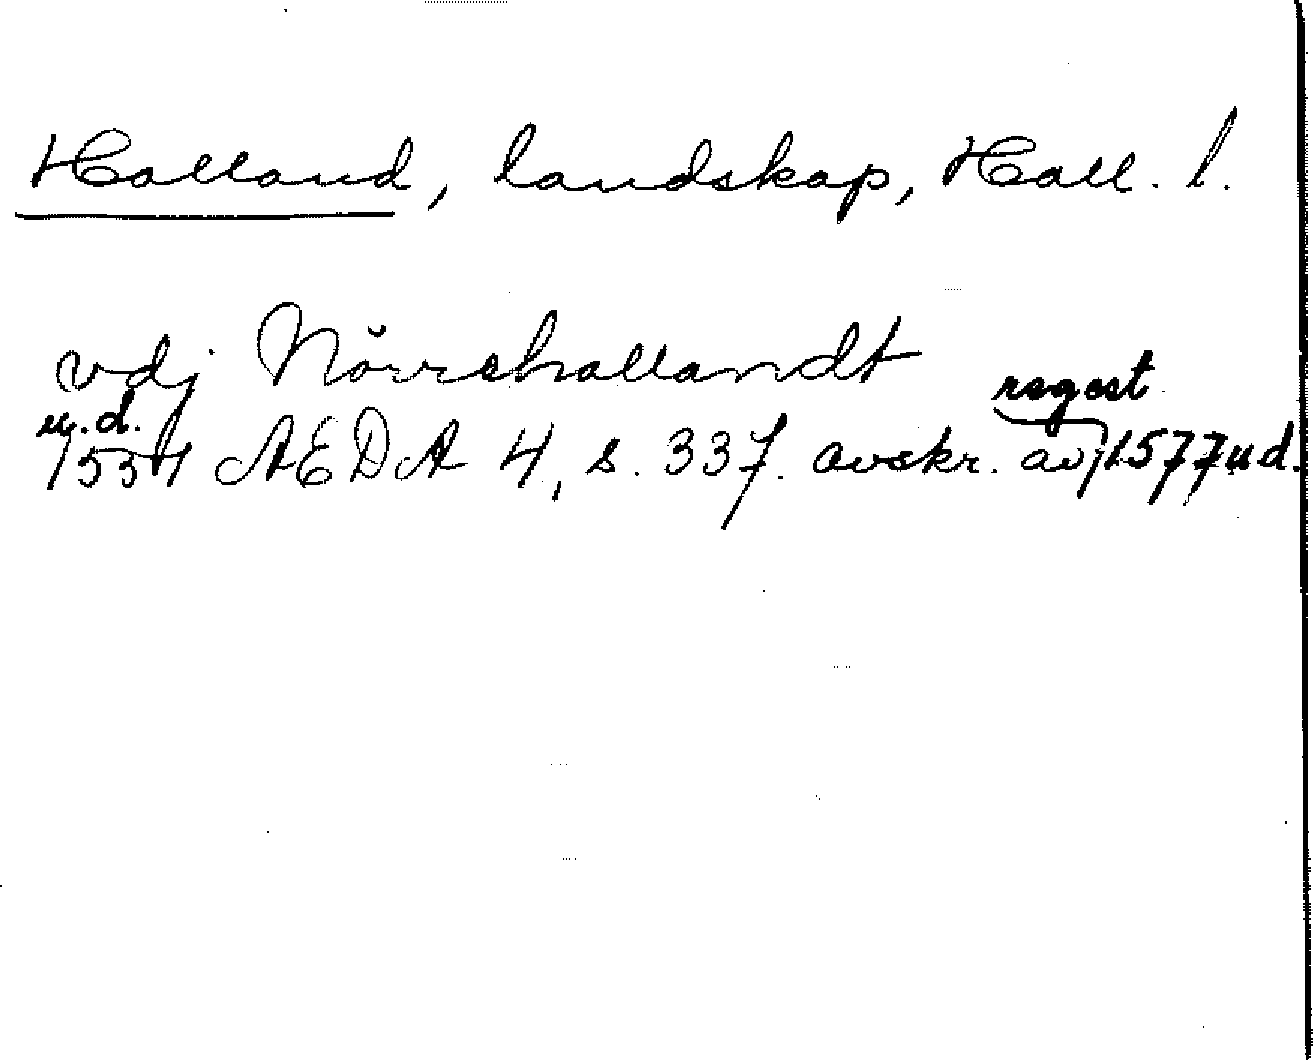 Halland, landskap, Hall. l.
vdj Nörrehallandt
u.d. regest
1534 AEDA 4, s. 337. avskr. av 1577 u d.